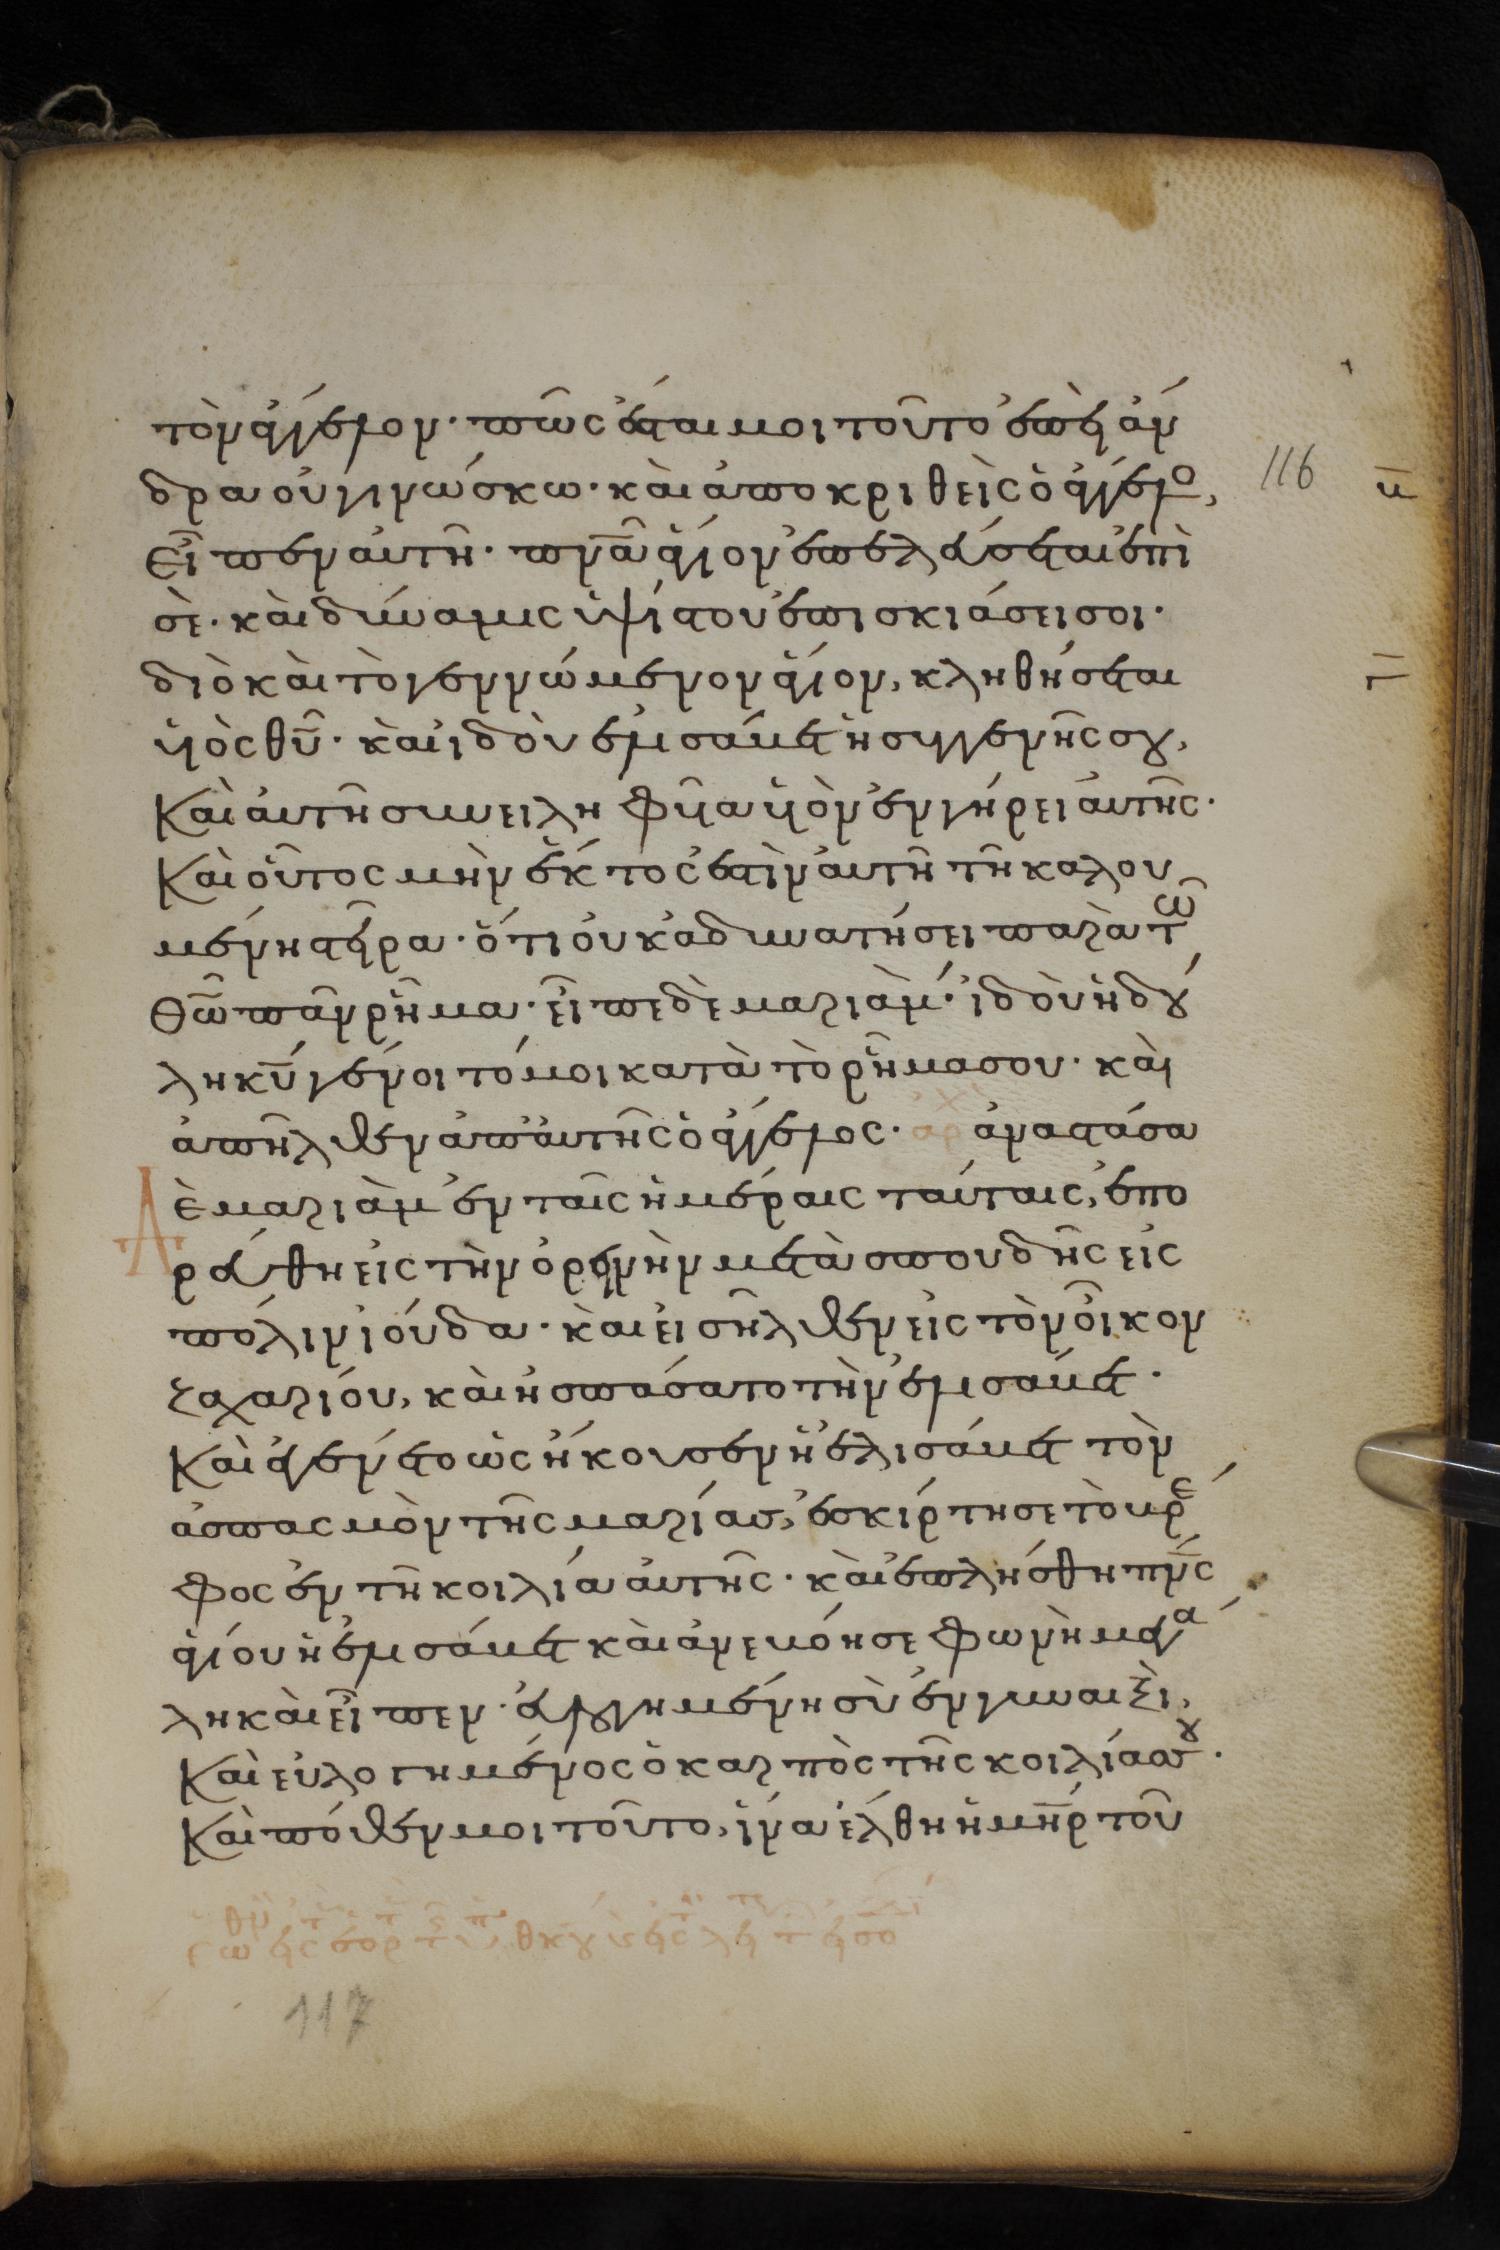 τὸν ἄγγελον· πῶς ἔσται μοι τοῦτο ἐπεὶ ἄν
δρα οὐ γινώσκω· καὶ ἀποκριθεὶς ὁ ἄγγελο,
εἶπεν αὐτῆ· πνᾶ ἅγιον ἐπελεύσεται ἐπὶ
σὲ· καὶ δύναμις ὑψίστου ἐπισκιάσει σοι·
διὸ καὶ τὸ γεννώμενον ἅγιον, κληθήσεται
υἱὸς θῦ· καὶ ἰδοὺ ἐλισάβετ ἡ συγγενῆς σου,
καὶ αὐτῆ συνειληφῦα υἱὸν ἐν γήρει αὐτῆς·
καὶ οὗτος μὴν ἕκτος ἐστὶν αὐτῆ τῆ καλου
μένη στεῖρα· ὅτι οὐκ ἀδυνατήσει παρὰ τῶ
θῶ πᾶν ῥῆμα· εἶπε δὲ μαριὰμ· ἰδοὺ ἡ δού
λη κῦ γένοιτό μοι κατὰ τὸ ῥῆμα σου· καὶ
ἀπῆλθεν ἀπ' αὐτῆς ὁ ἄγγελος· αρχ ἀναστάσα
Δὲ μαριὰμ ἐν ταῖς ἡμέραις ταύταις, ἐπο
ρεύθη εἰς τὴν ὀρεινὴν μετὰ σπουδῆς εἰς
πόλιν ἰούδα· καὶ εἰσῆλθεν εἰς τὸν οἶκον
ζαχαρίου, καὶ ἠσπάσατο τὴν ἐλισάβετ·
καὶ ἐγένετο ὡς ἤκουσεν ἡ ἐλισάβετ τὸν
ἀσπασμὸν τῆς μαρίας, ἐσκίρτησε τὸ βρέ
φος ἐν τῆ κοιλία αὐτῆς· καὶ ἐπλήσθη πνς
ἁγίου ἡ ἐλισάβετ καὶ ἀνεβόησε φωνὴ μεγά
λη καὶ εἶπεν· εὐλογημένη σὺ ἐν γυναιξὶ,
καὶ εὐλογημένος ὁ καρπὸς τῆς κοιλίας σου·
καὶ πόθεν μοι τοῦτο, ἵνα ἔλθη ἡ μηρ τοῦ
116
117